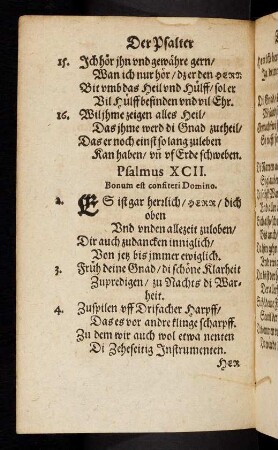 Der Psalter
15. Ich hör jhn vnd gewähre gern/
Wan ich nur hör / dz er den HERR
Bit vmb das Heil vnd Hülff / sol er
Vil Hülff befinden vnd vil Ehr.
16. Wil jhme zeigen alles Heil/
Das jhme werd di Gnad zutheil/
Das er noch einst so lang zuleben
Kan haben/ vñ vf Erde schweben.
Psalmus XCII.
Bonum est confiteri Domino.
2. ES ist gar herrlich/ HERR/ dich
oben
Vnd vnden allezeit zuloben/
Dir auch zudancken inniglich/
Von jez bis immer ewiglich.
3. Früh deine Gnad/ di schöne Klarheit
Zupredigen/ zu Nachts di War-
heit.
4. Zuspilen vff Drifacher Harpff/
Das es vor andre klinge scharpff.
Zu dem wir auch wol etwa nenten
Di Zeheseitig Instrumenten.
HER